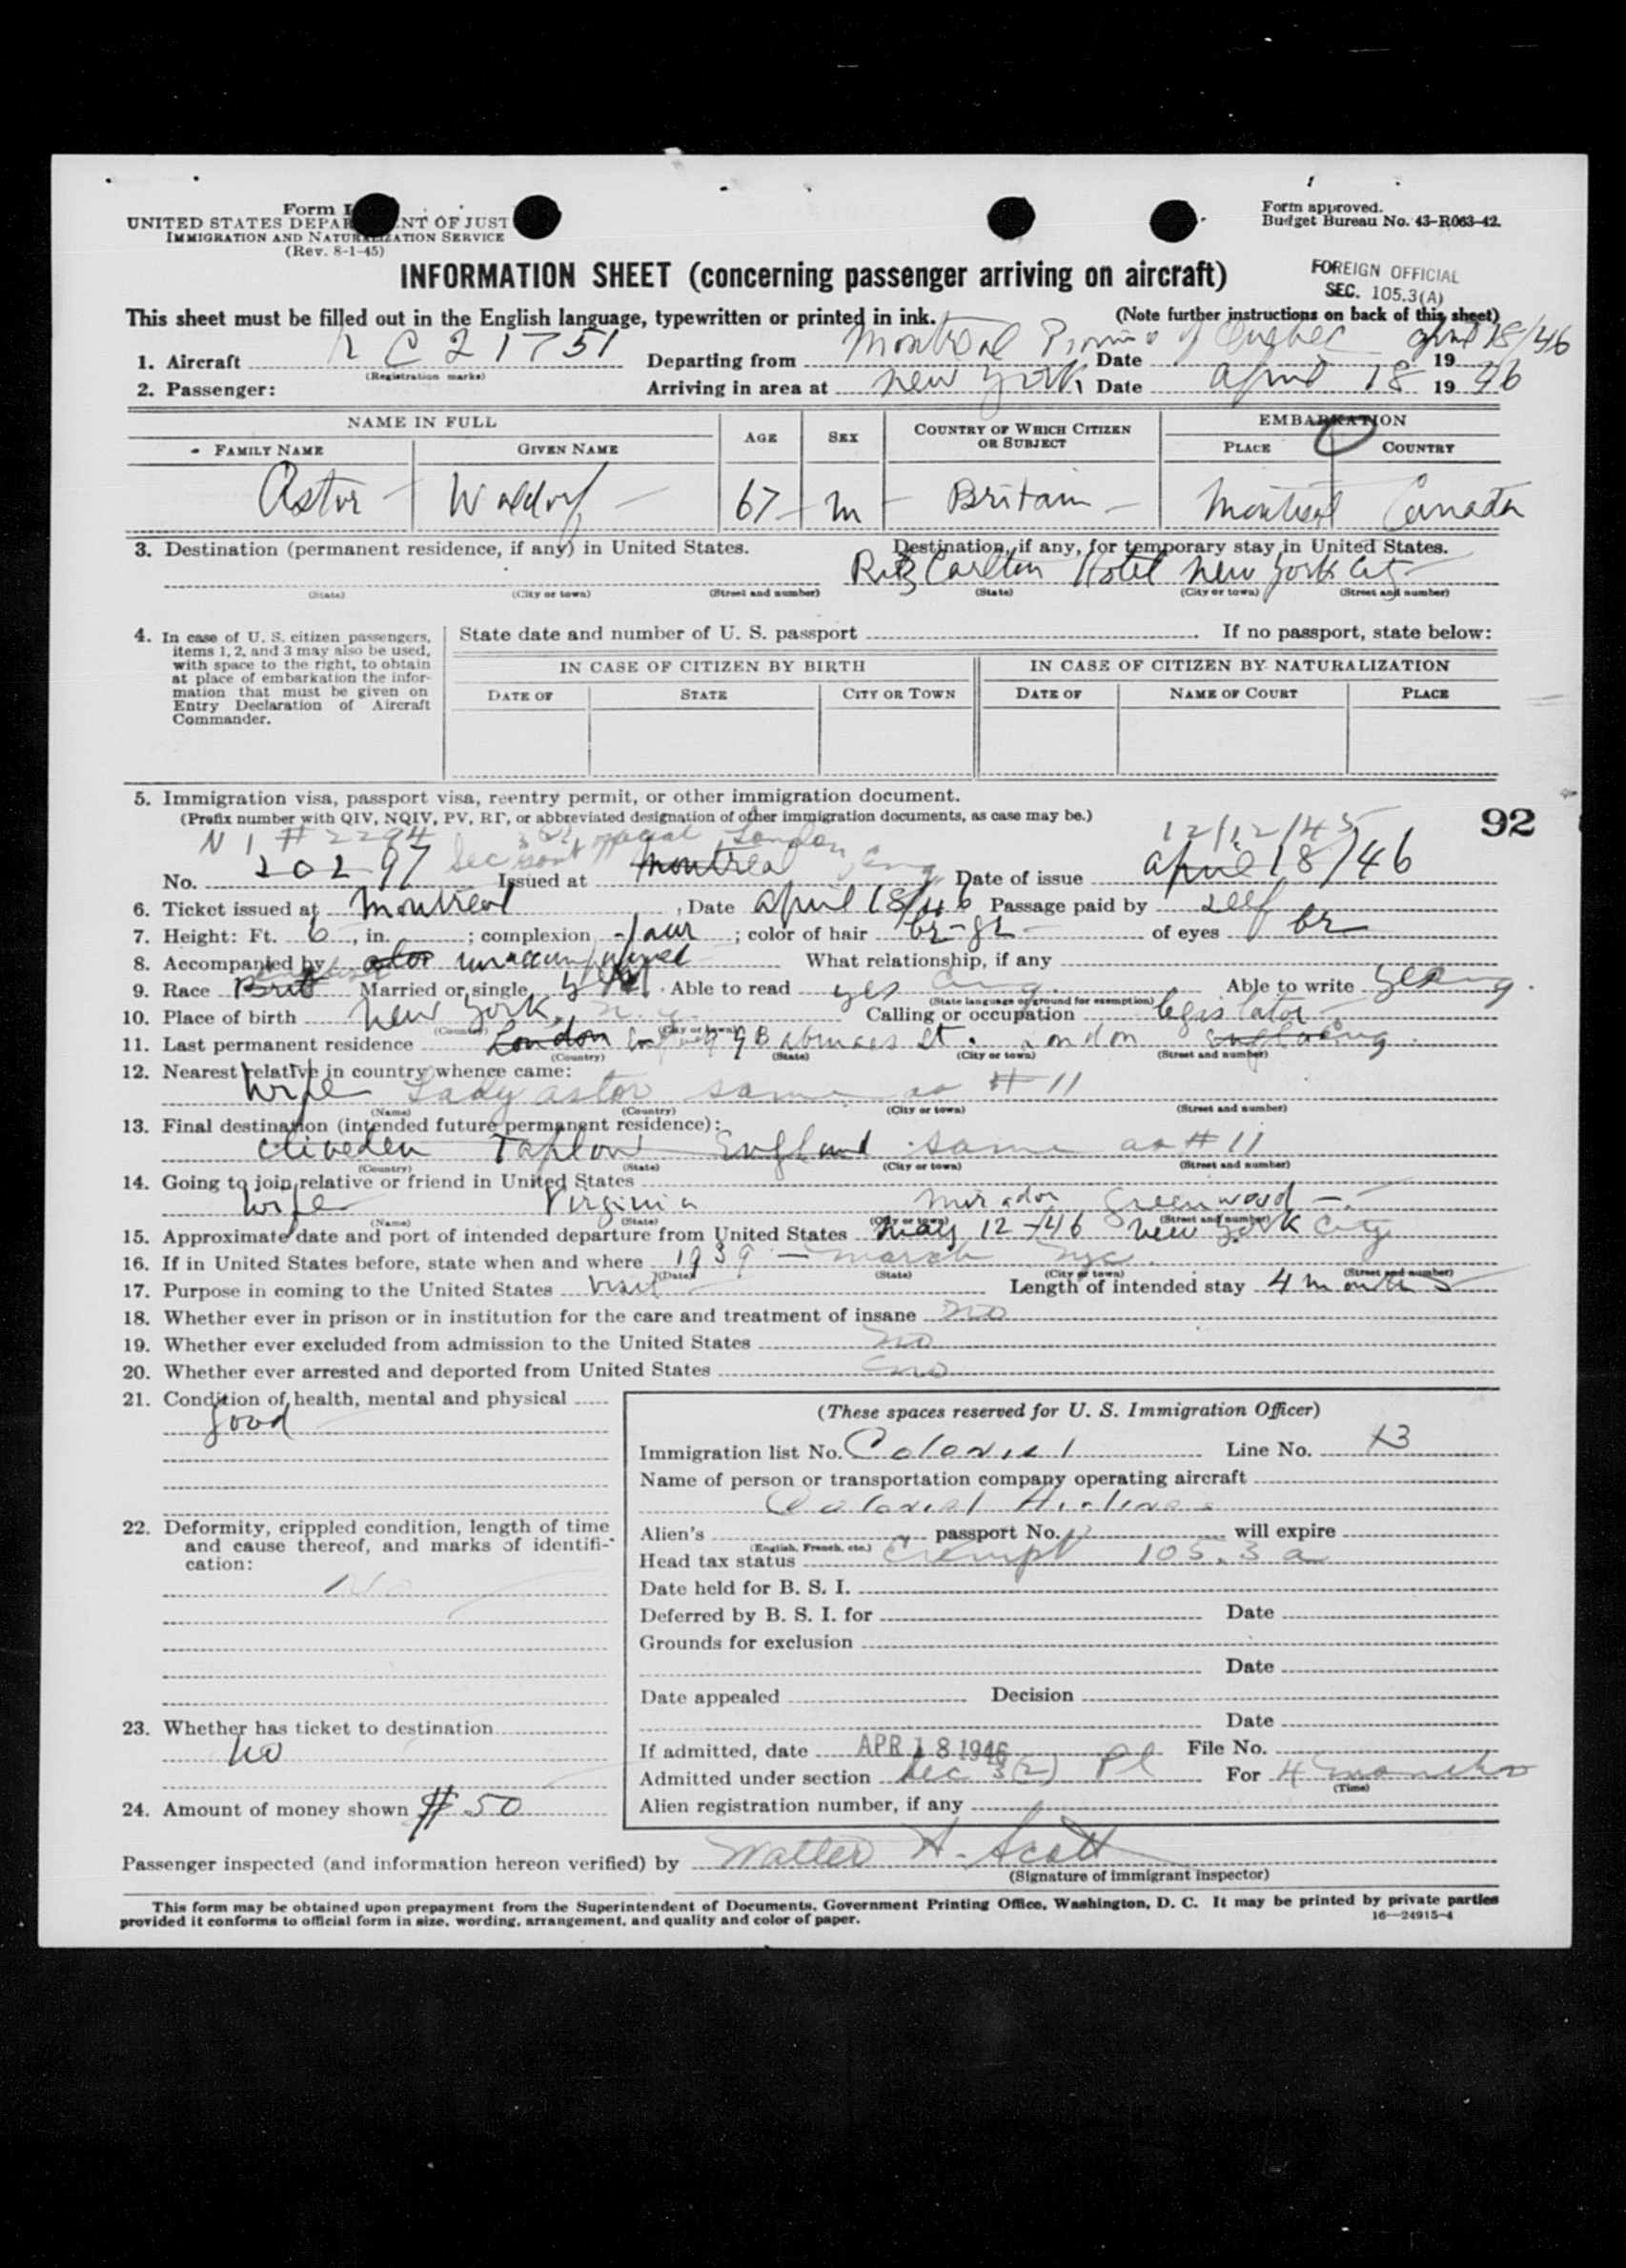 Form I
UNITED STATES DEPAR NT OF JUST
IMMIGRATION AND NATURALIZATION SERVICE
(Rev. 8-1-45)
Form approved.
Budget Bureau No. 43-R063-42.
INFORMATION SHEET (concerning passenger arriving on aircraft)
FOREIGN OFFICIAL
SEC. 105.3(A)
This sheet must be filled out in the English language, typewritten or printed in ink.
(Note further instructions on back of this sheet)
1. Aircraft C 21751 Departing from Montreal Quebec Date April 18/46 19
(Registration marks)
2. Passenger: Arriving in area at New York Date April 18 19 46
NAME IN FULL AGE SEX COUNTRY OF WHICH CITIZEN OR SUBJECT EMBARKATION
FAMILY NAME GIVEN NAME PLACE COUNTRY
Astor Waldorf 67 M Britain Montreal Canada
3. Destination (permanent residence, if any) in United States. Destination, if any, for temporary stay in United States.
Ritz Carlton Hotel New York City
(State) (City or town) (Street and number) (State) (City or town) (Street and number)
4. In case of U. S. citizen passengers, items 1, 2, and 3 may also be used, with space to the right, to obtain at place of embarkation the information that must be given on Entry Declaration of Aircraft Commander.
State date and number of U. S. passport If no passport, state below:
IN CASE OF CITIZEN BY BIRTH IN CASE OF CITIZEN BY NATURALIZATION
DATE OF STATE CITY OR TOWN DATE OF NAME OF COURT PLACE
5. Immigration visa, passport visa, reentry permit, or other immigration document.
(Prefix number with QIV, NQIV, PV, RP, or abbreviated designation of other immigration documents, as case may be.)
92
# 2294 London, Eng 12/12/45
No. 20297 Issued at Montreal Date of issue April 18/46
6. Ticket issued at Montreal, Date April 18/46 Passage paid by self
7. Height: Ft. 6, in. ; complexion ; color of hair br-gr of eyes br
8. Accompanied by unaccompanied What relationship, if any
9. Race Married or single Able to read yes Eng. Able to write yes Eng.
(State language or ground for exemption)
10. Place of birth New York, N.Y. Calling or occupation legislator
(Country) (City or town)
11. Last permanent residence London St. London Eng.
(Country) (State) (City or town) (Street and number)
12. Nearest relative in country whence came:
Wife Lady Astor same as #11
(Name) (Country) (City or town) (Street and number)
13. Final destination (intended future permanent residence):
Cliveden Taplow England same as #11
(Country) (State) (City or town) (Street and number)
14. Going to join relative or friend in United States
Wife Virginia Mirador Greenwood
(Name) (State) (City or town) (Street and number)
15. Approximate date and port of intended departure from United States May 12-46 New York City
16. If in United States before, state when and where 1939 - March NYC
(Date) (State) (City or town) (Street and number)
17. Purpose in coming to the United States Visit Length of intended stay 4 months
18. Whether ever in prison or in institution for the care and treatment of insane no
19. Whether ever excluded from admission to the United States no
20. Whether ever arrested and deported from United States no
21. Condition of health, mental and physical
good
22. Deformity, crippled condition, length of time and cause thereof, and marks of identification:
No
23. Whether has ticket to destination
no
24. Amount of money shown $ 50
(These spaces reserved for U. S. Immigration Officer)
Immigration list No. Colonial Line No. 13
Name of person or transportation company operating aircraft
Colonial Airlines
Alien's passport No. will expire
(English, French, etc.)
Head tax status Exempt 105.3 a
Date held for B. S. I.
Deferred by B. S. I. for Date
Grounds for exclusion
Date
Date appealed Decision
Date
If admitted, date APR 18 1946 File No.
Admitted under section Sec 3(2) For 4 months
(Time)
Alien registration number, if any
Passenger inspected (and information hereon verified) by Walter A. Scott
(Signature of immigrant inspector)
This form may be obtained upon prepayment from the Superintendent of Documents, Government Printing Office, Washington, D. C. It may be printed by private parties
provided it conforms to official form in size, wording, arrangement, and quality and color of paper.
16—24915-4